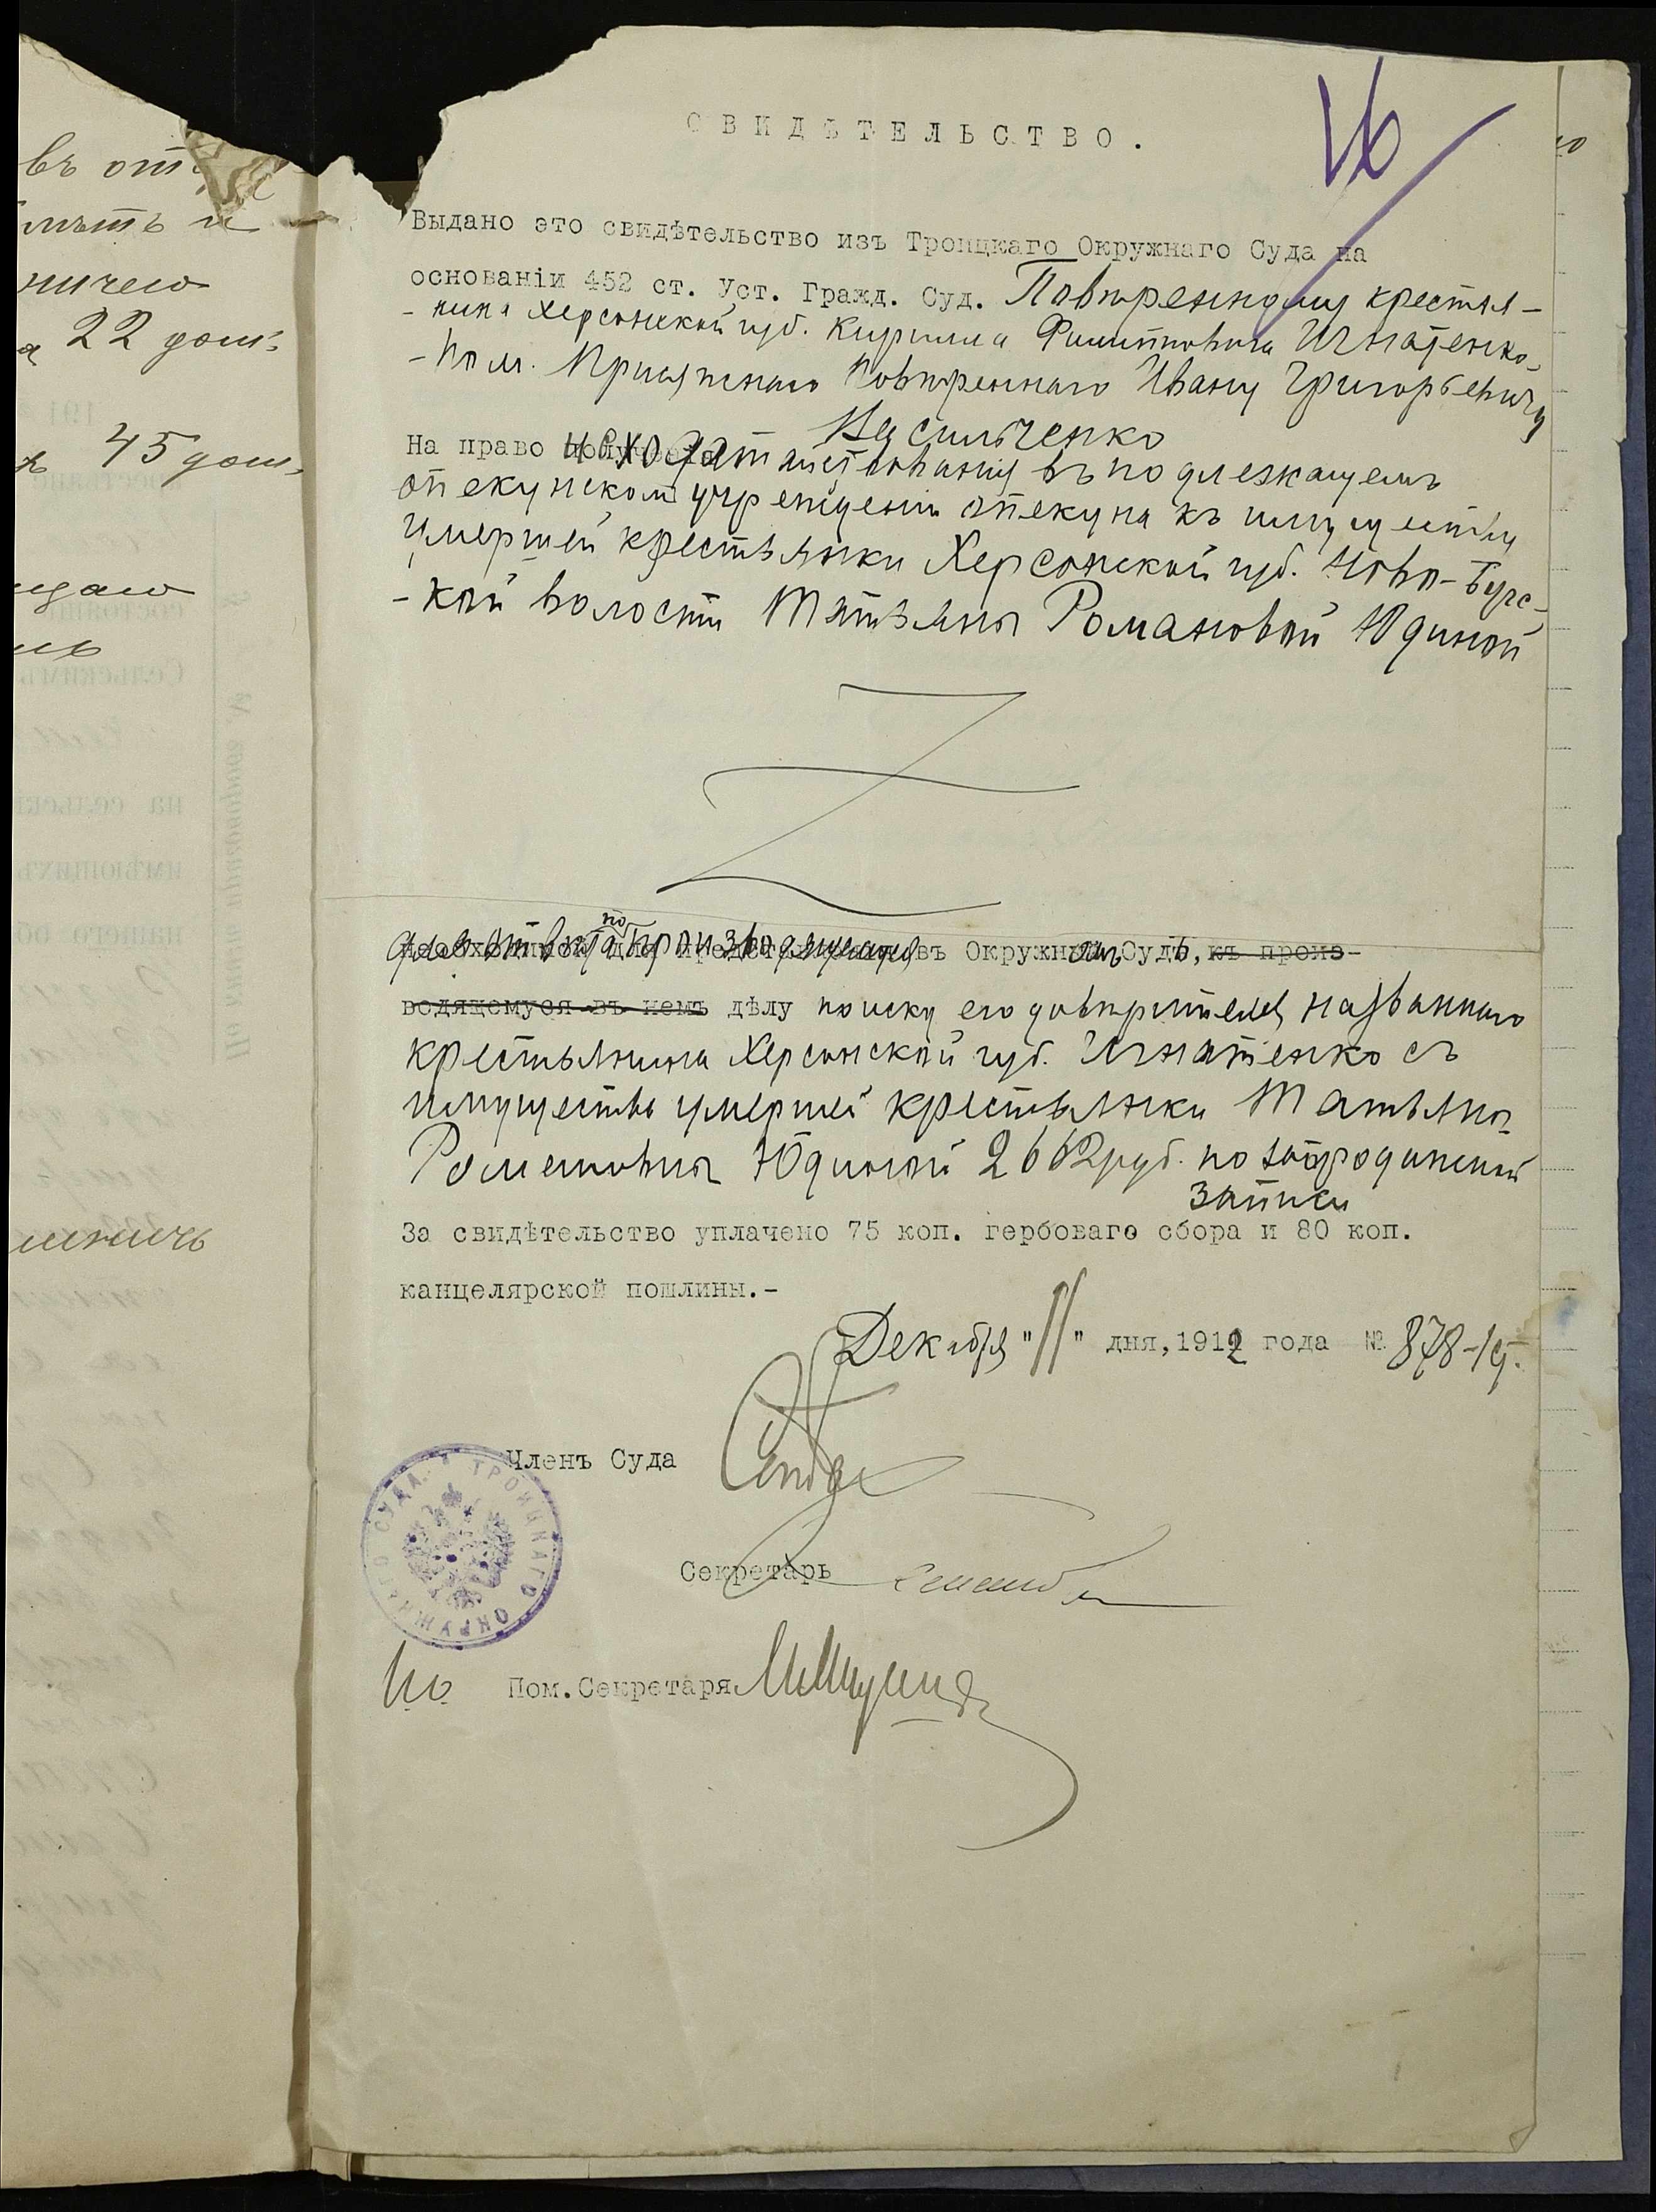 въ отъ
имѣть и
ничего
22 дом.
45 дом.
16
СВИДѢТЕЛЬСТВО.
Выдано это свидѣтельство изъ Троицкаго Окружнаго Суда на
основаніи 452 ст. Уст. Гражд. Суд. Повѣренному крестья-
нина Херсонской губ. Кирилла Филипповича Игнатенко,
- Пом. Присяжнаго Повѣреннаго Ивану Григорьевичу
Васильченко
На право исходатайствованія въ подлежащемъ
опекунскомъ учрежденіи опекуна къ имуществу
умершей крестьянки Херсонской губ. Ново-Бугс-
-кой волости Татьяны Романовой Юдиной
для отвѣта по производящемуся въ Окружномъ Судѣ, къ произ-
водящемуся въ немъ дѣлу по иску его довѣрителя, названнаго
крестьянина Херсонской губ. Игнатенко съ
имущества умершей крестьянки Татьяны
Романовны Юдиной 2662 руб. по
записи
За свидѣтельство уплачено 75 коп. гербоваго сбора и 80 коп.
канцелярской пошлины.-
Декабря "11" дня, 1912 года № 878-
Членъ Суда
ТРОИЦКАГО ОКРУЖНАГО СУДА
Секретарь
Пом. Секретаря